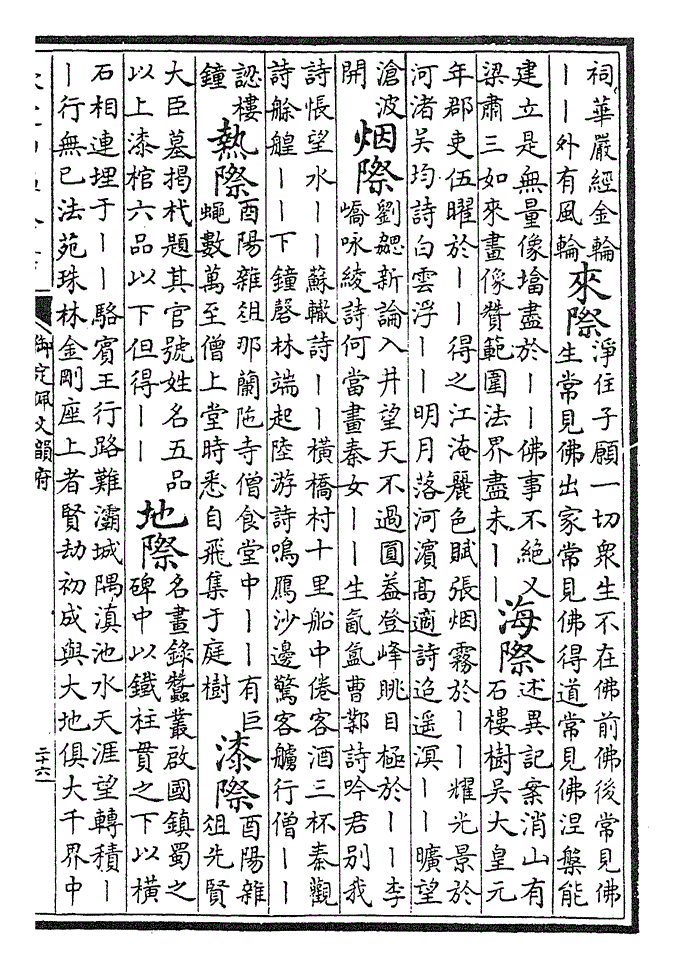 祠華嚴經金輪
丨丨外有風輪
來際
淨住子願一切衆生不在佛前佛後常見佛
生常見佛出家常見佛得道常見佛涅槃能
建立是無量像墖盡於丨丨佛事不絶又
梁肅三如來畫像贊範圍法界盡未丨丨
海際
述異記案消山有
石樓樹吳大皇元
年郡吏伍曜於丨丨得之江淹麗色賦張烟霧於丨丨耀光景於
河渚吳均詩白雲浮丨丨明月落河濵高適詩迢遥溟丨丨曠望
滄波
開
烟際
劉勰新論入井望天不過圓葢登峰眺目極於丨丨李
嶠咏綾詩何當畫秦女丨丨生氤氲曹鄴詩吟君别我
詩悵望水丨丨蘇轍詩丨丨橫橋村十里船中倦客酒三杯秦觀
詩艅艎丨丨下鐘磬林端起陸游詩鳴鴈沙邊驚客艫行僧丨丨
認樓
鐘
熱際
酉陽雜俎那蘭陁寺僧食堂中丨丨有巨
蠅數萬至僧上堂時悉自飛集于庭樹
漆際
酉陽雜
俎先賢
大臣墓揭杙題其官號姓名五品
以上漆棺六品以下但得丨丨
地際
名畫錄蠶叢啟國鎮蜀之
碑中以鐵柱貫之下以橫
石相連埋于丨丨駱賓王行路難灞城隅滇池水天涯望轉積丨
丨行無已法苑珠林金剛座上者賢劫初成與大地俱大千界中
御定佩文韻府
二十六